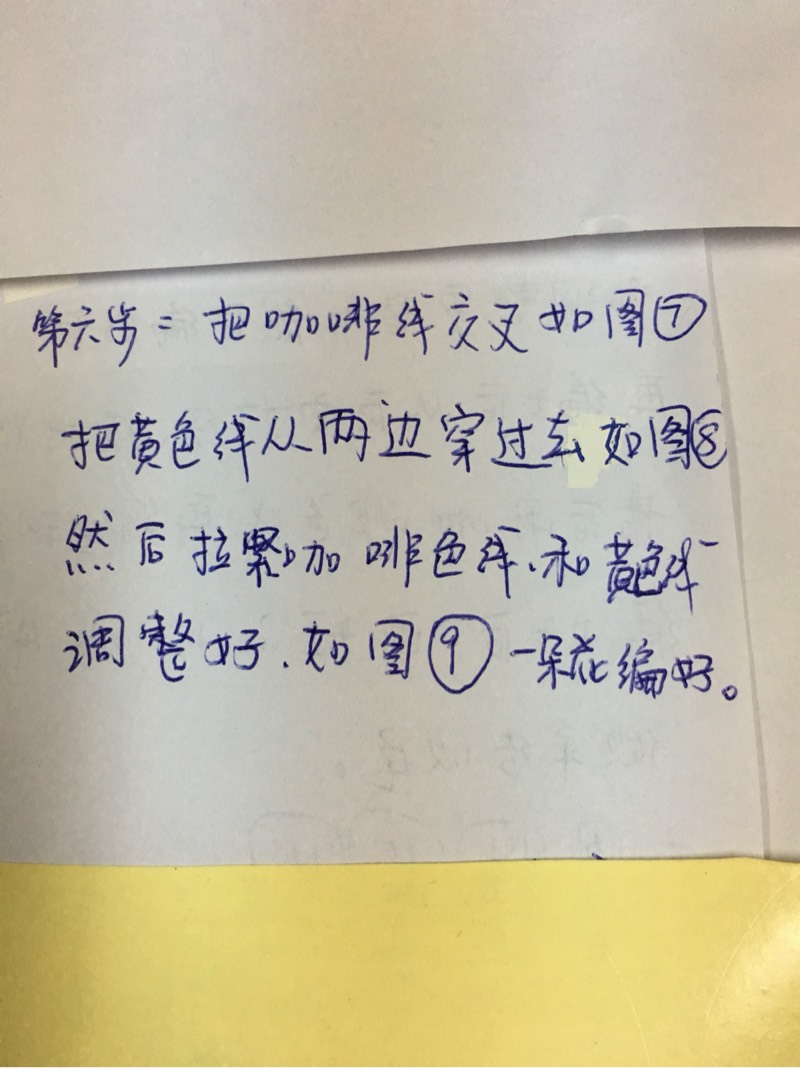 第六步：把咖啡线交叉如图⑦
把黄色线从两边穿过去如图⑧
然后拉紧咖啡色线、和黄色线
调整好、如图⑨一朵花编好。